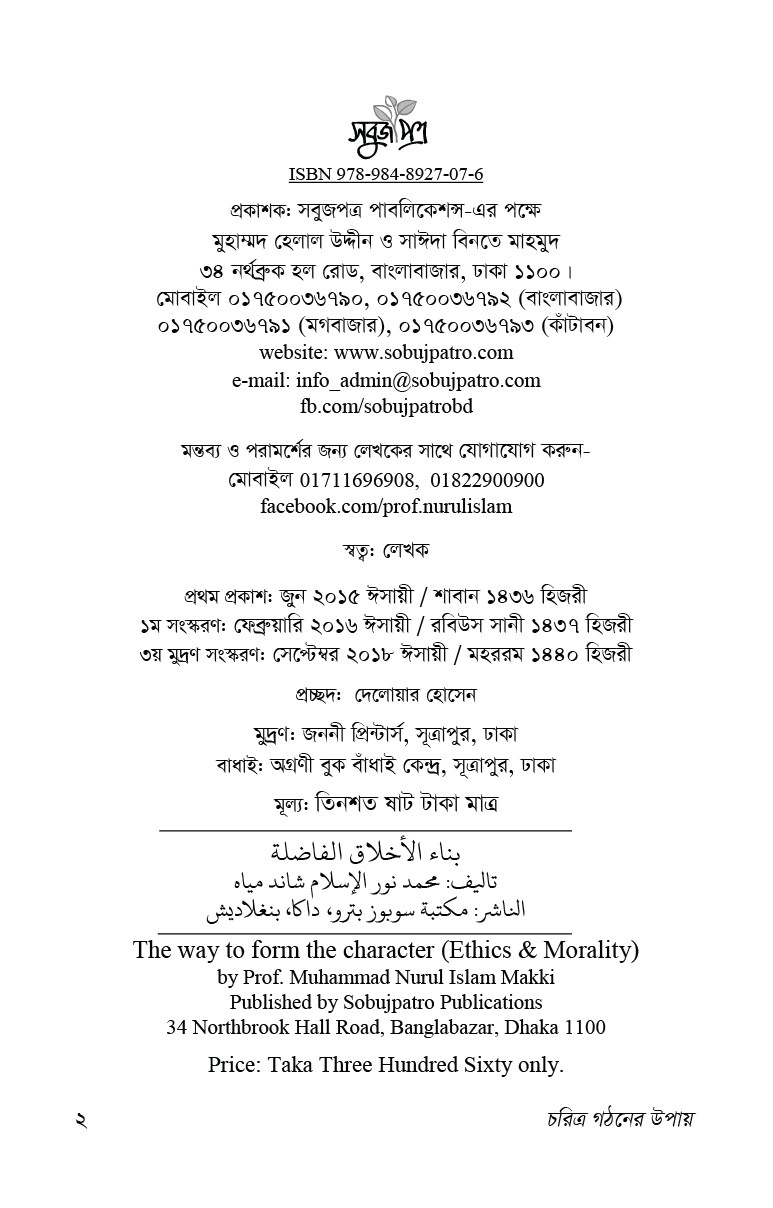 সবুজপত্র
ISBN 978-984-8927-07-6
প্রকাশক: সবুজপত্র পাবলিকেশন্স-এর পক্ষে
মুহাম্মদ হেলাল উদ্দীন ও সাঈদা বিনতে মাহমুদ
৩৪ নর্থব্রুক হল রোড, বাংলাবাজার, ঢাকা ১১০০।
মোবাইল ০১৭৫০০৩৬৭৯০, ০১৭৫০০৩৬৭৯২ (বাংলাবাজার)
০১৭৫০০৩৬৭৯১ (মগবাজার), ০১৭৫০০৩৬৭৯৩ (কাঁটাবন)
website: www.sobujpatro.com
e-mail: info_admin@sobujpatro.com
fb.com/sobujpatrobd
মন্তব্য ও পরামর্শের জন্য লেখকের সাথে যোগাযোগ করুন-
মোবাইল 01711696908, 01822900900
facebook.com/prof.nurulislam
স্বত্ব: লেখক
প্রথম প্রকাশ: জুন ২০১৫ ঈসায়ী / শাবান ১৪৩৬ হিজরী
১ম সংস্করণ: ফেব্রুয়ারি ২০১৬ ঈসায়ী / রবিউস সানী ১৪৩৭ হিজরী
৩য় মুদ্রণ সংস্করণ: সেপ্টেম্বর ২০১৮ ঈসায়ী / মহররম ১৪৪০ হিজরী
প্রচ্ছদ: দেলোয়ার হোসেন
মুদ্রণ: জননী প্রিন্টার্স, সূত্রাপুর, ঢাকা
বাধাই: অগ্রণী বুক বাঁধাই কেন্দ্র, সূত্রাপুর, ঢাকা
মূল্য: তিনশত ষাট টাকা মাত্র
بناء الأخلاق الفاضلة
تاليف: محمد نور الإسلام شاند مياه
الناشر: مكتبة سوبوز بترو، داكا، بنغلاديش
The way to form the character (Ethics & Morality)
by Prof. Muhammad Nurul Islam Makki
Published by Sobujpatro Publications
34 Northbrook Hall Road, Banglabazar, Dhaka 1100
Price: Taka Three Hundred Sixty only.
২ চরিত্র গঠনের উপায়